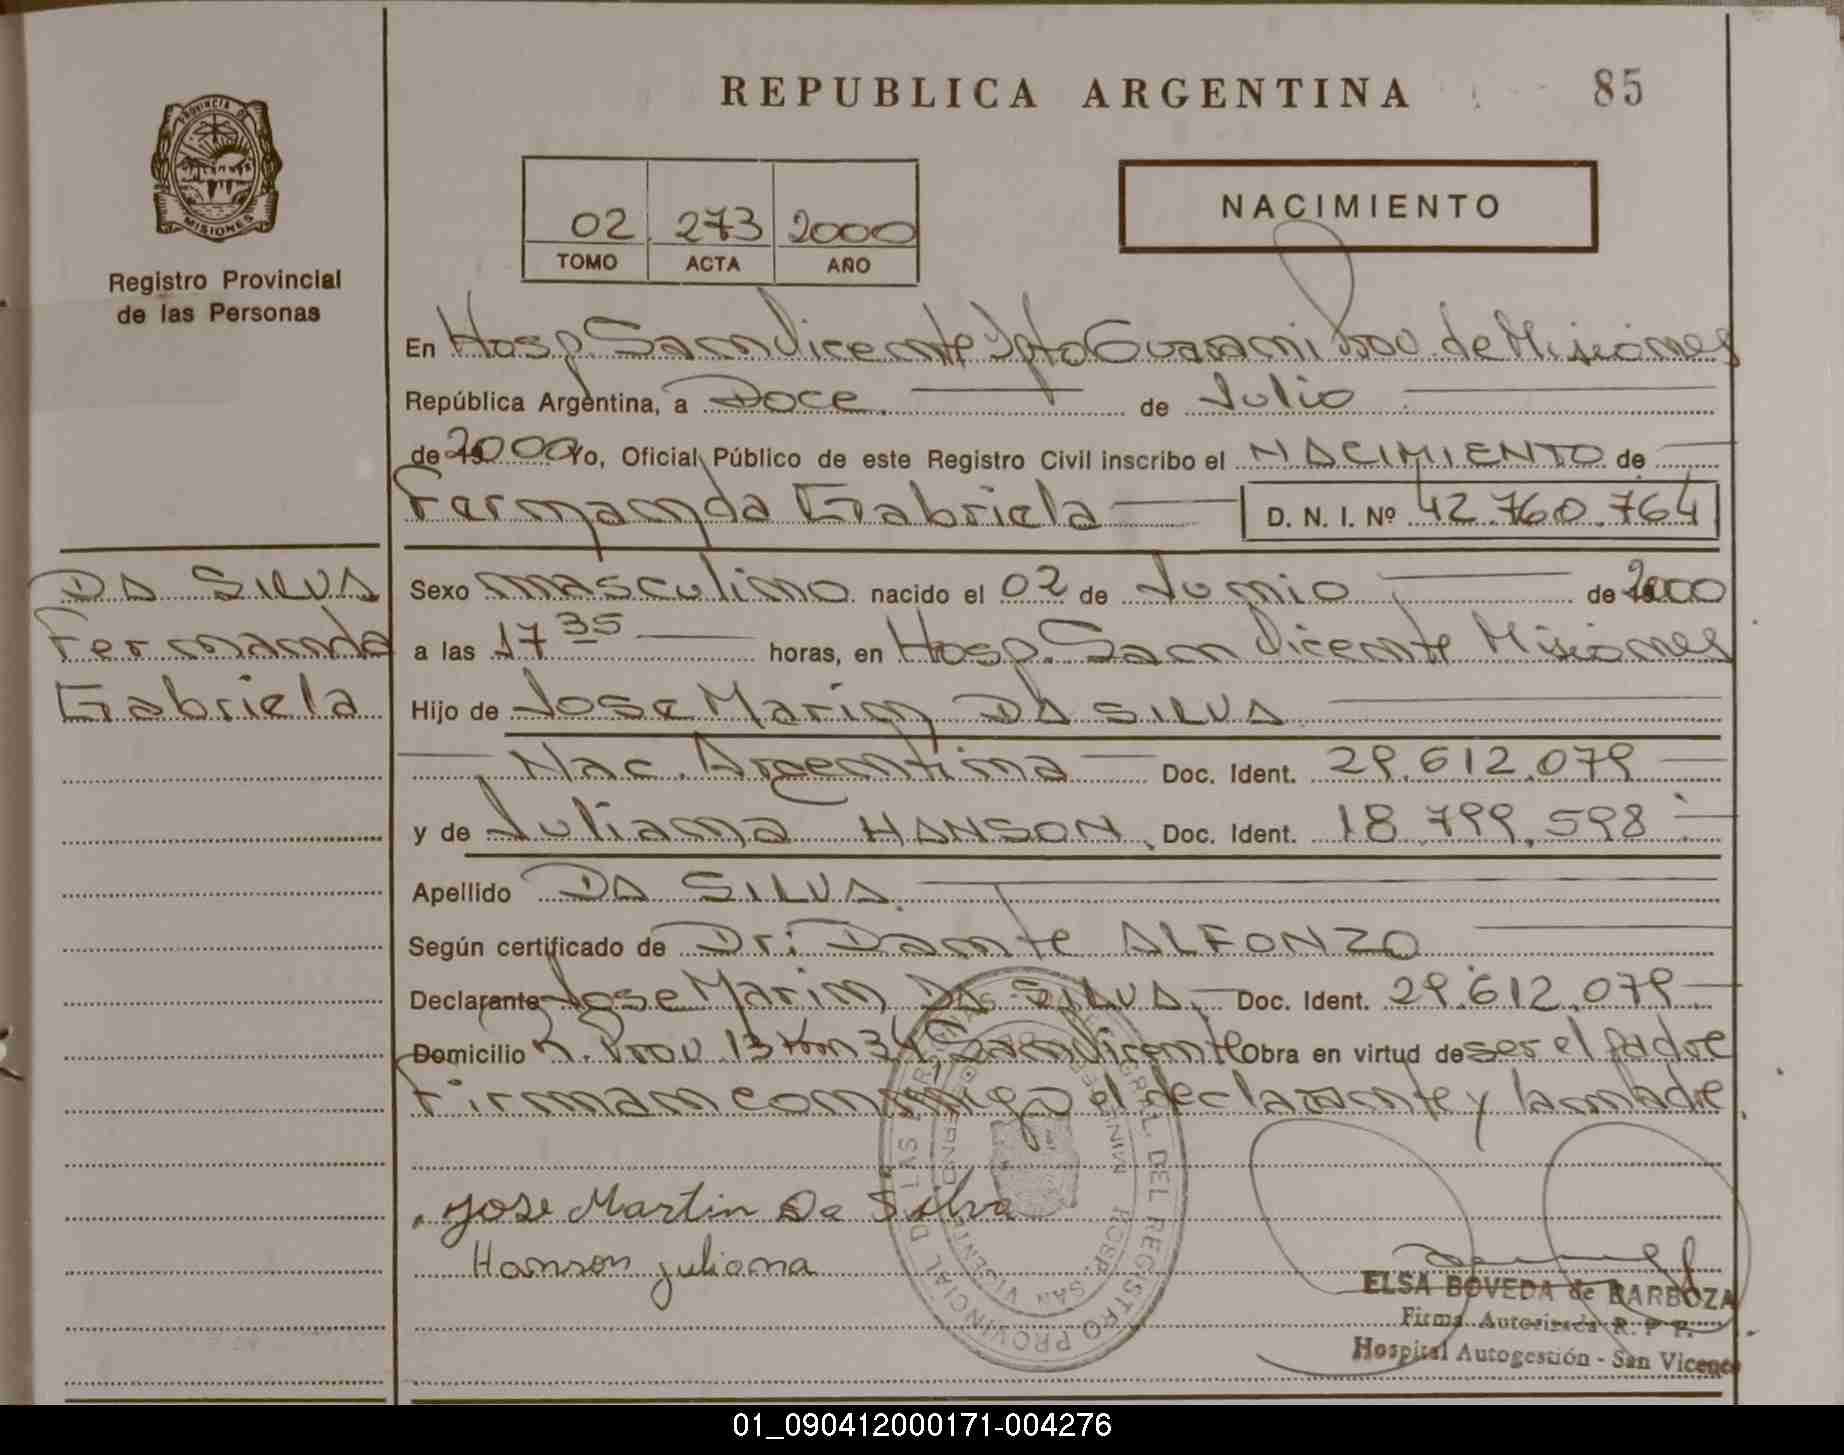 REPUBLICA ARGENTINA
85
PROVINCIA DE
MISIONES
Registro Provincial
de las Personas
02 273 2000
TOMO ACTA AÑO
NACIMIENTO
En Hosp. San Vicente Dpto Guarani Prov. de Misiones
República Argentina, a Doce de Julio
de 2000 Yo, Oficial Público de este Registro Civil inscribo el NACIMIENTO de
Fernanda Gabriela D. N. I. Nº 42.760.764
DA SILVA
Fernanda
Gabriela
Sexo masculino nacido el 02 de Junio de 2000
a las 17 35 horas, en Hosp. San Vicente Misiones
Hijo de Jose Marin DA SILVA
Nac. Argentina Doc. Ident. 29.612.079
y de Juliana HANSON, Doc. Ident. 18.799.598
Apellido DA SILVA
Según certificado de Dr: Dante ALFONZO
Declarante Jose Marin DA SILVA Doc. Ident. 29.612.079
Domicilio R. Prov. 13 Km 34 San Vicente Obra en virtud de ser el padre
Firman conmigo el declarante y la madre
Jose Martin Da Silva
Hanson juliana
DEL REGISTRO PROVINCIAL DE LAS
SAN VICENTE
ELSA BOVEDA de BARBOZA
Firma Autorizada R. P. P.
Hospital Autogestión - San Vicente
01_090412000171-004276